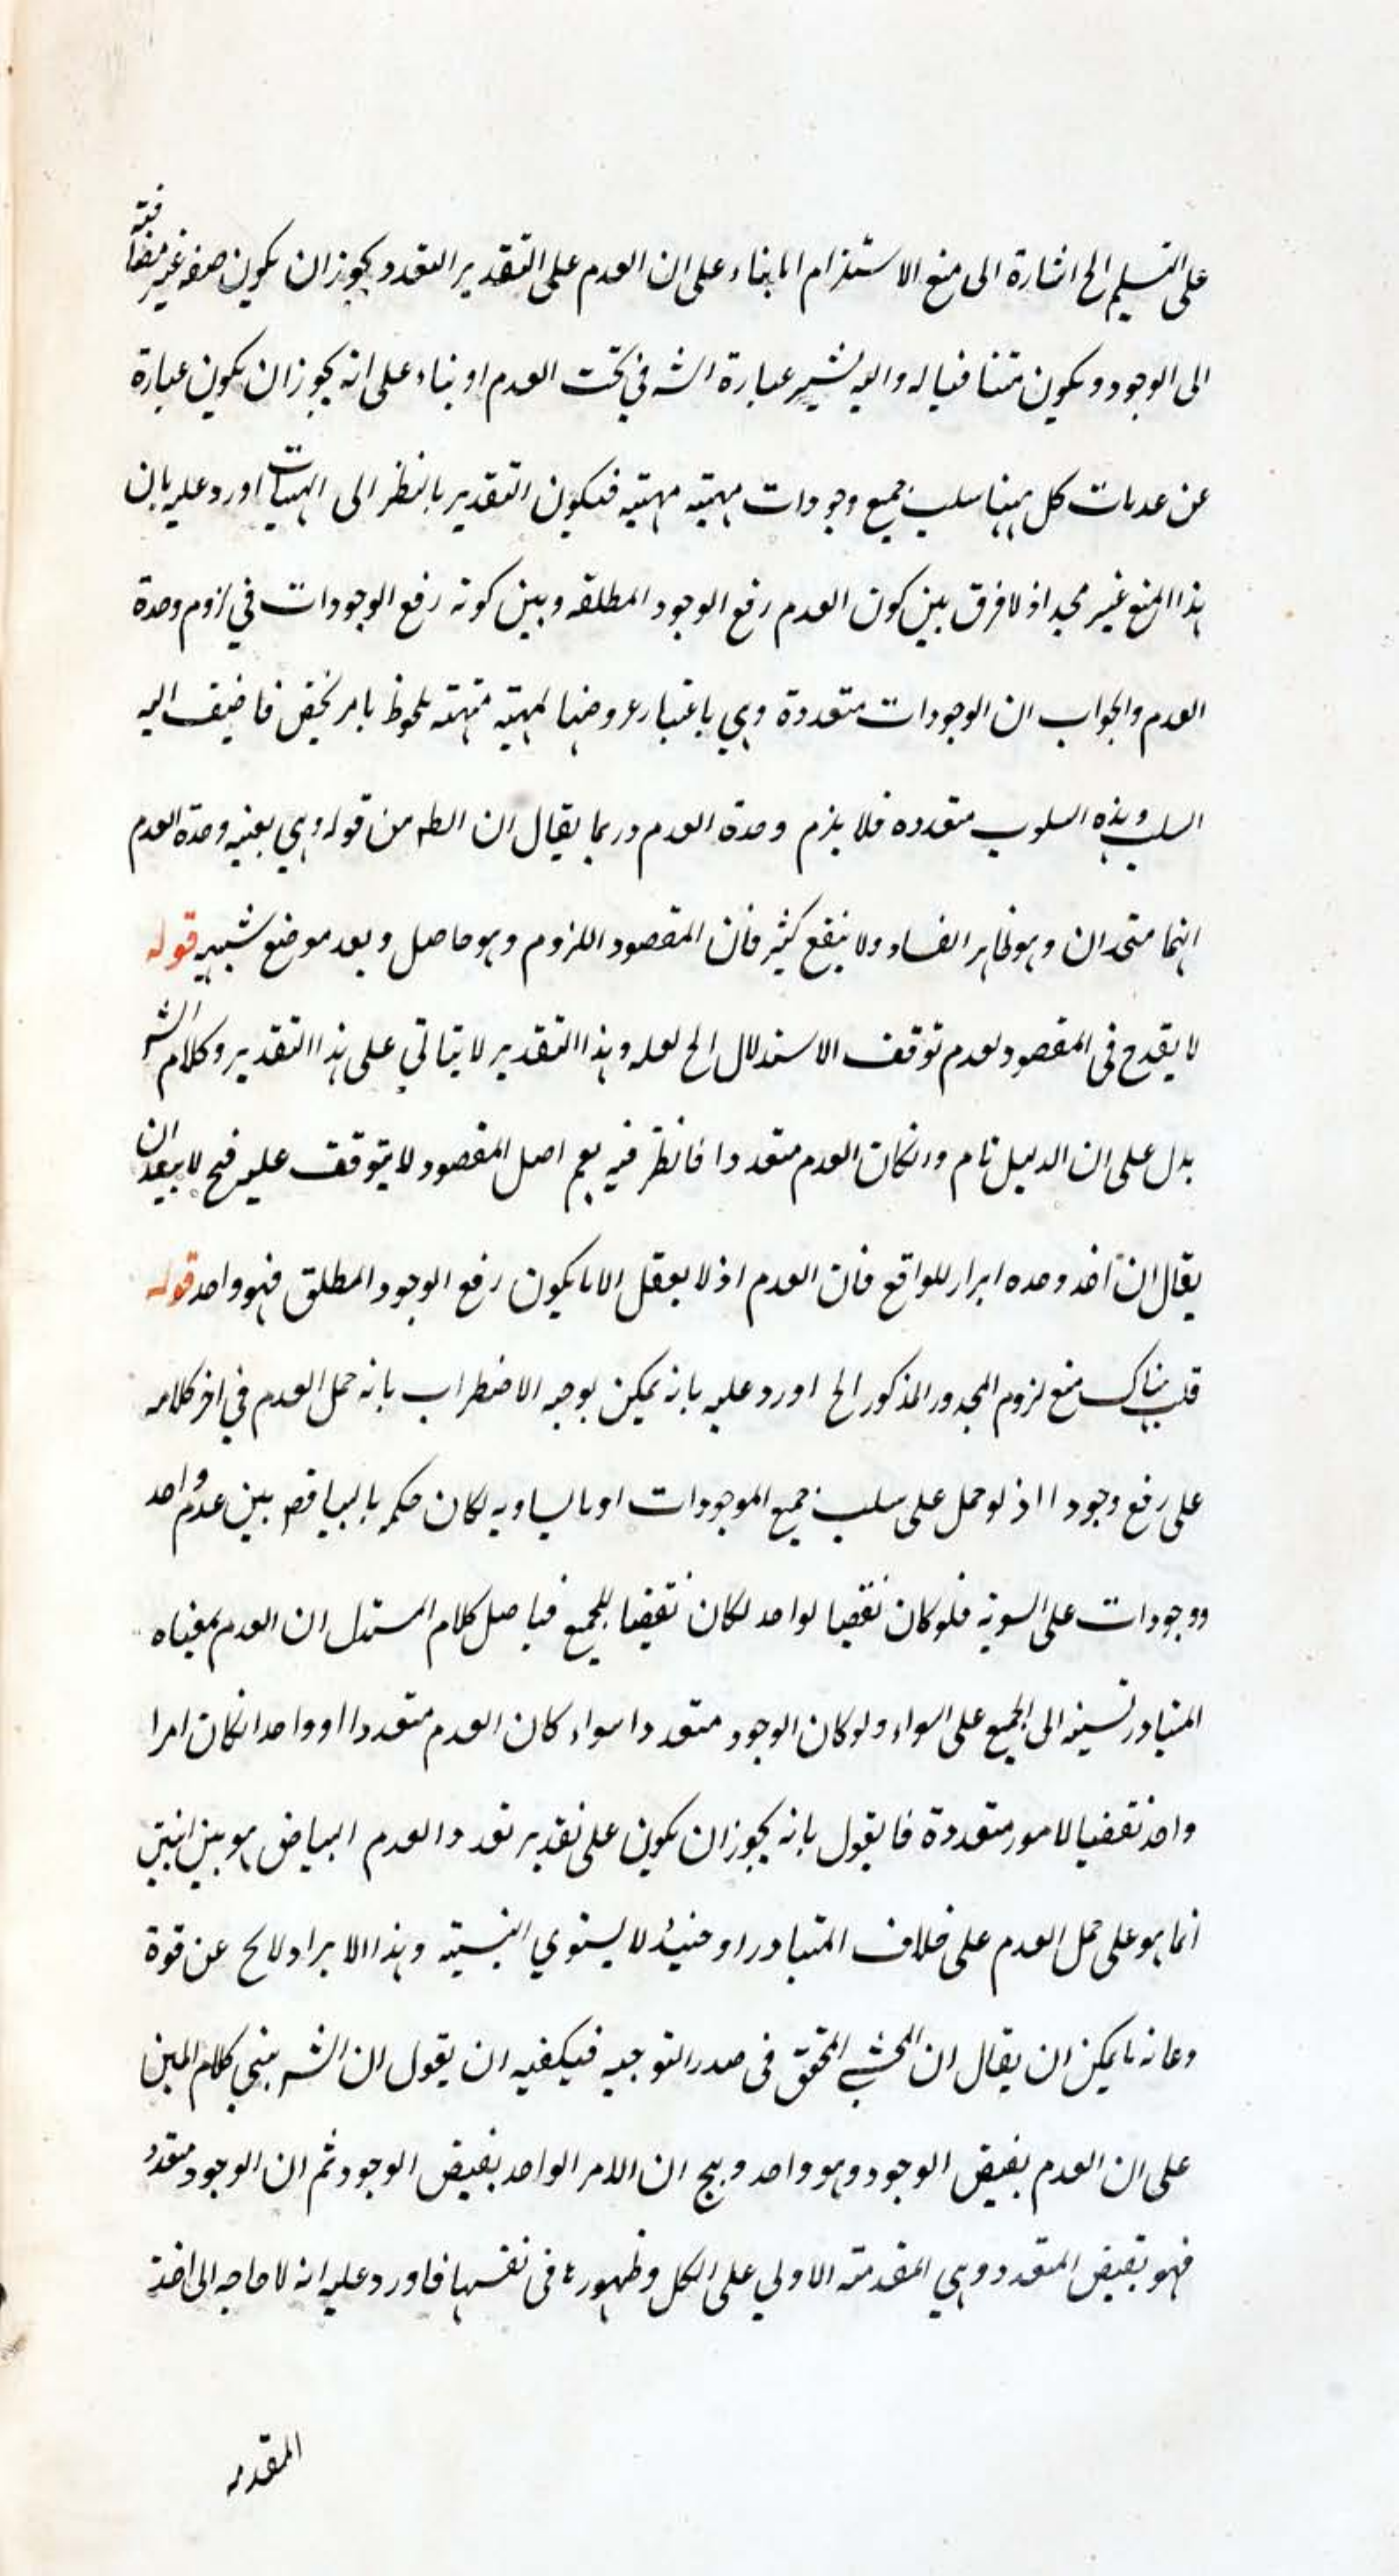 على التسليم الخ اشارة الى منع الاستلزام اما بناء على ان العدم على التقدير التعدد يجوز ان يكون صفه غير مضافة
الى الوجود ويكون متنافيا له واليه يشير عبارة الشه في تحت العدم او بناء على انه يجوز ان يكون عبارة
عن عدمات كل منها سلب جميع وجودات مهية مهية فيكون التقدير بالنظر الى المهيات اورد عليه بان
هذا المنع غير مجد اذ لا فرق بين كون العدم رفع الوجود المطلقه وبين كونه رفع الوجودات في لزوم وحدة
العدم والجواب ان الوجودات متعددة وهي باعتبار عروضها لمهية مهية ملحوظ بامر يخص فاضيف اليه
السلب وهذه السلوب متعدده فلا يلزم وحدة العدم وربما يقال ان الظه من قوله وهي بعينه وحدة العدم
انهما متحدان وهو ظاهر الفساد ولا ينفع كثير فان المقصود اللزوم وهو حاصل وبعد موضع شبهه قوله
لا يقدح في المقصود لعدم توقف الاستدلال الخ لعله وهذا التقدير لا يتاتي على هذا التقدير وكلام الشه
يدل على ان الدليل تام وانكان العدم متعددا فانظر فيه نعم اصل المقصود لا يتوقف عليه فح لا يبعد ان
يقال ان اخذ وحده ابراز للواقع فان العدم اذ لا يعقل الا ما يكون رفع الوجود المطلق فهو واحد قوله
قلت هناك منع لزوم المحذور المذكور الخ اورد عليه بانه يمكن بوجه الاضطراب بانه حمل العدم في اخر كلامه
على رفع وجود ا اذ لو حمل على سلب جميع الموجودات او ما يساويه لكان حكمه بالتناقض بين عدم واحد
ووجودات على السوية فلو كان نقيضا لواحد لكان نقيضا للجميع فحاصل كلام المستدل ان العدم بمعناه
المتبادر نسبته الى الجميع على السواء ولو كان الوجود متعددا سواء كان العدم متعددا او واحدا لكان امرا
واحد نقيضا لامور متعددة فما يقول بانه يجوز ان يكون على تقدير تعدد العدم التناقض هو بين اثنين
انما هو على حمل العدم على خلاف المتبادر او حينئذ لا يستوي النسبة وهذا الايراد لا يخ عن قوة
وغاية ما يمكن ان يقال ان المحشي المحقق في صدر التوجيه فيكفيه ان يقول ان الشه يبني كلام المتن
على ان العدم نقيض الوجود وهو واحد ويج ان الامر الواحد نقيض الوجود ثم ان الوجود متعدد
فهو نقيض المتعدد وهي المقدمة الاولي على الكل وظهورها في نفسها فاورد عليه انه لا حاجه الى اخذ
المقدمه